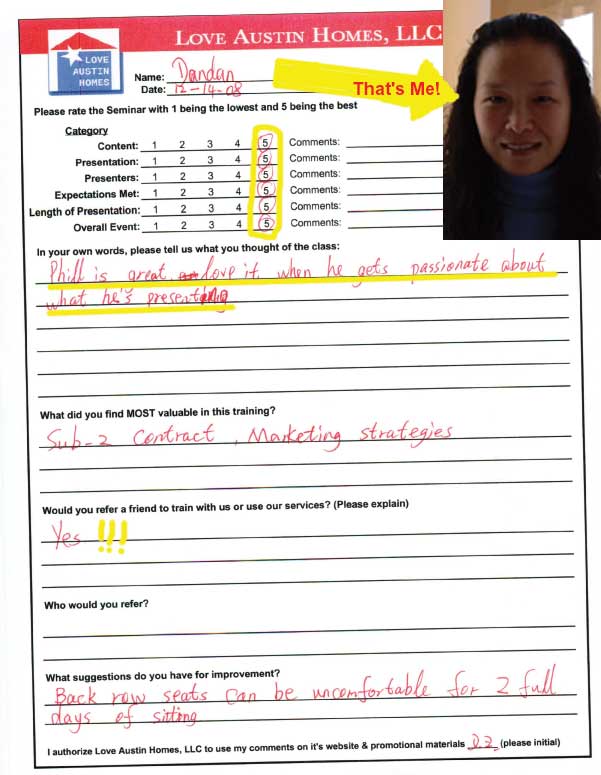 LOVE AUSTIN HOMES, LLC
LOVE
AUSTIN
HOMES
Name: Dandan
Date: 12-14-08
That's Me!
Please rate the Seminar with 1 being the lowest and 5 being the best
Category
Content: 1 2 3 4 5 Comments:
Presentation: 1 2 3 4 5 Comments:
Presenters: 1 2 3 4 5 Comments:
Expectations Met: 1 2 3 4 5 Comments:
Length of Presentation: 1 2 3 4 5 Comments:
Overall Event: 1 2 3 4 5 Comments:
In your own words, please tell us what you thought of the class:
Phill is great. love it when he gets passionate about
what he's presenting
What did you find MOST valuable in this training?
Sub-2 contract, Marketing strategies
Would you refer a friend to train with us or use our services? (Please explain)
Yes !!!
Who would you refer?
What suggestions do you have for improvement?
Back row seats can be uncomfortable for 2 full
days of sitting
I authorize Love Austin Homes, LLC to use my comments on it's website & promotional materials D.Z. (please initial)